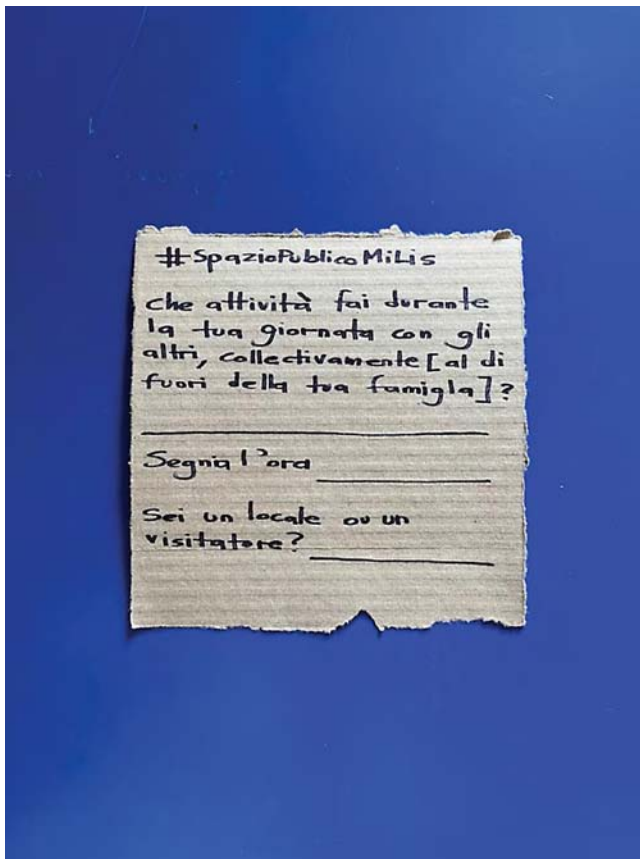 #SpazioPublicoMiLis
che attività fai durante
la tua giornata con gli
altri, collectivamente [al di
fuori della tua famigla]?
Segnia l'ora
Sei un locale ou un
visitatore?